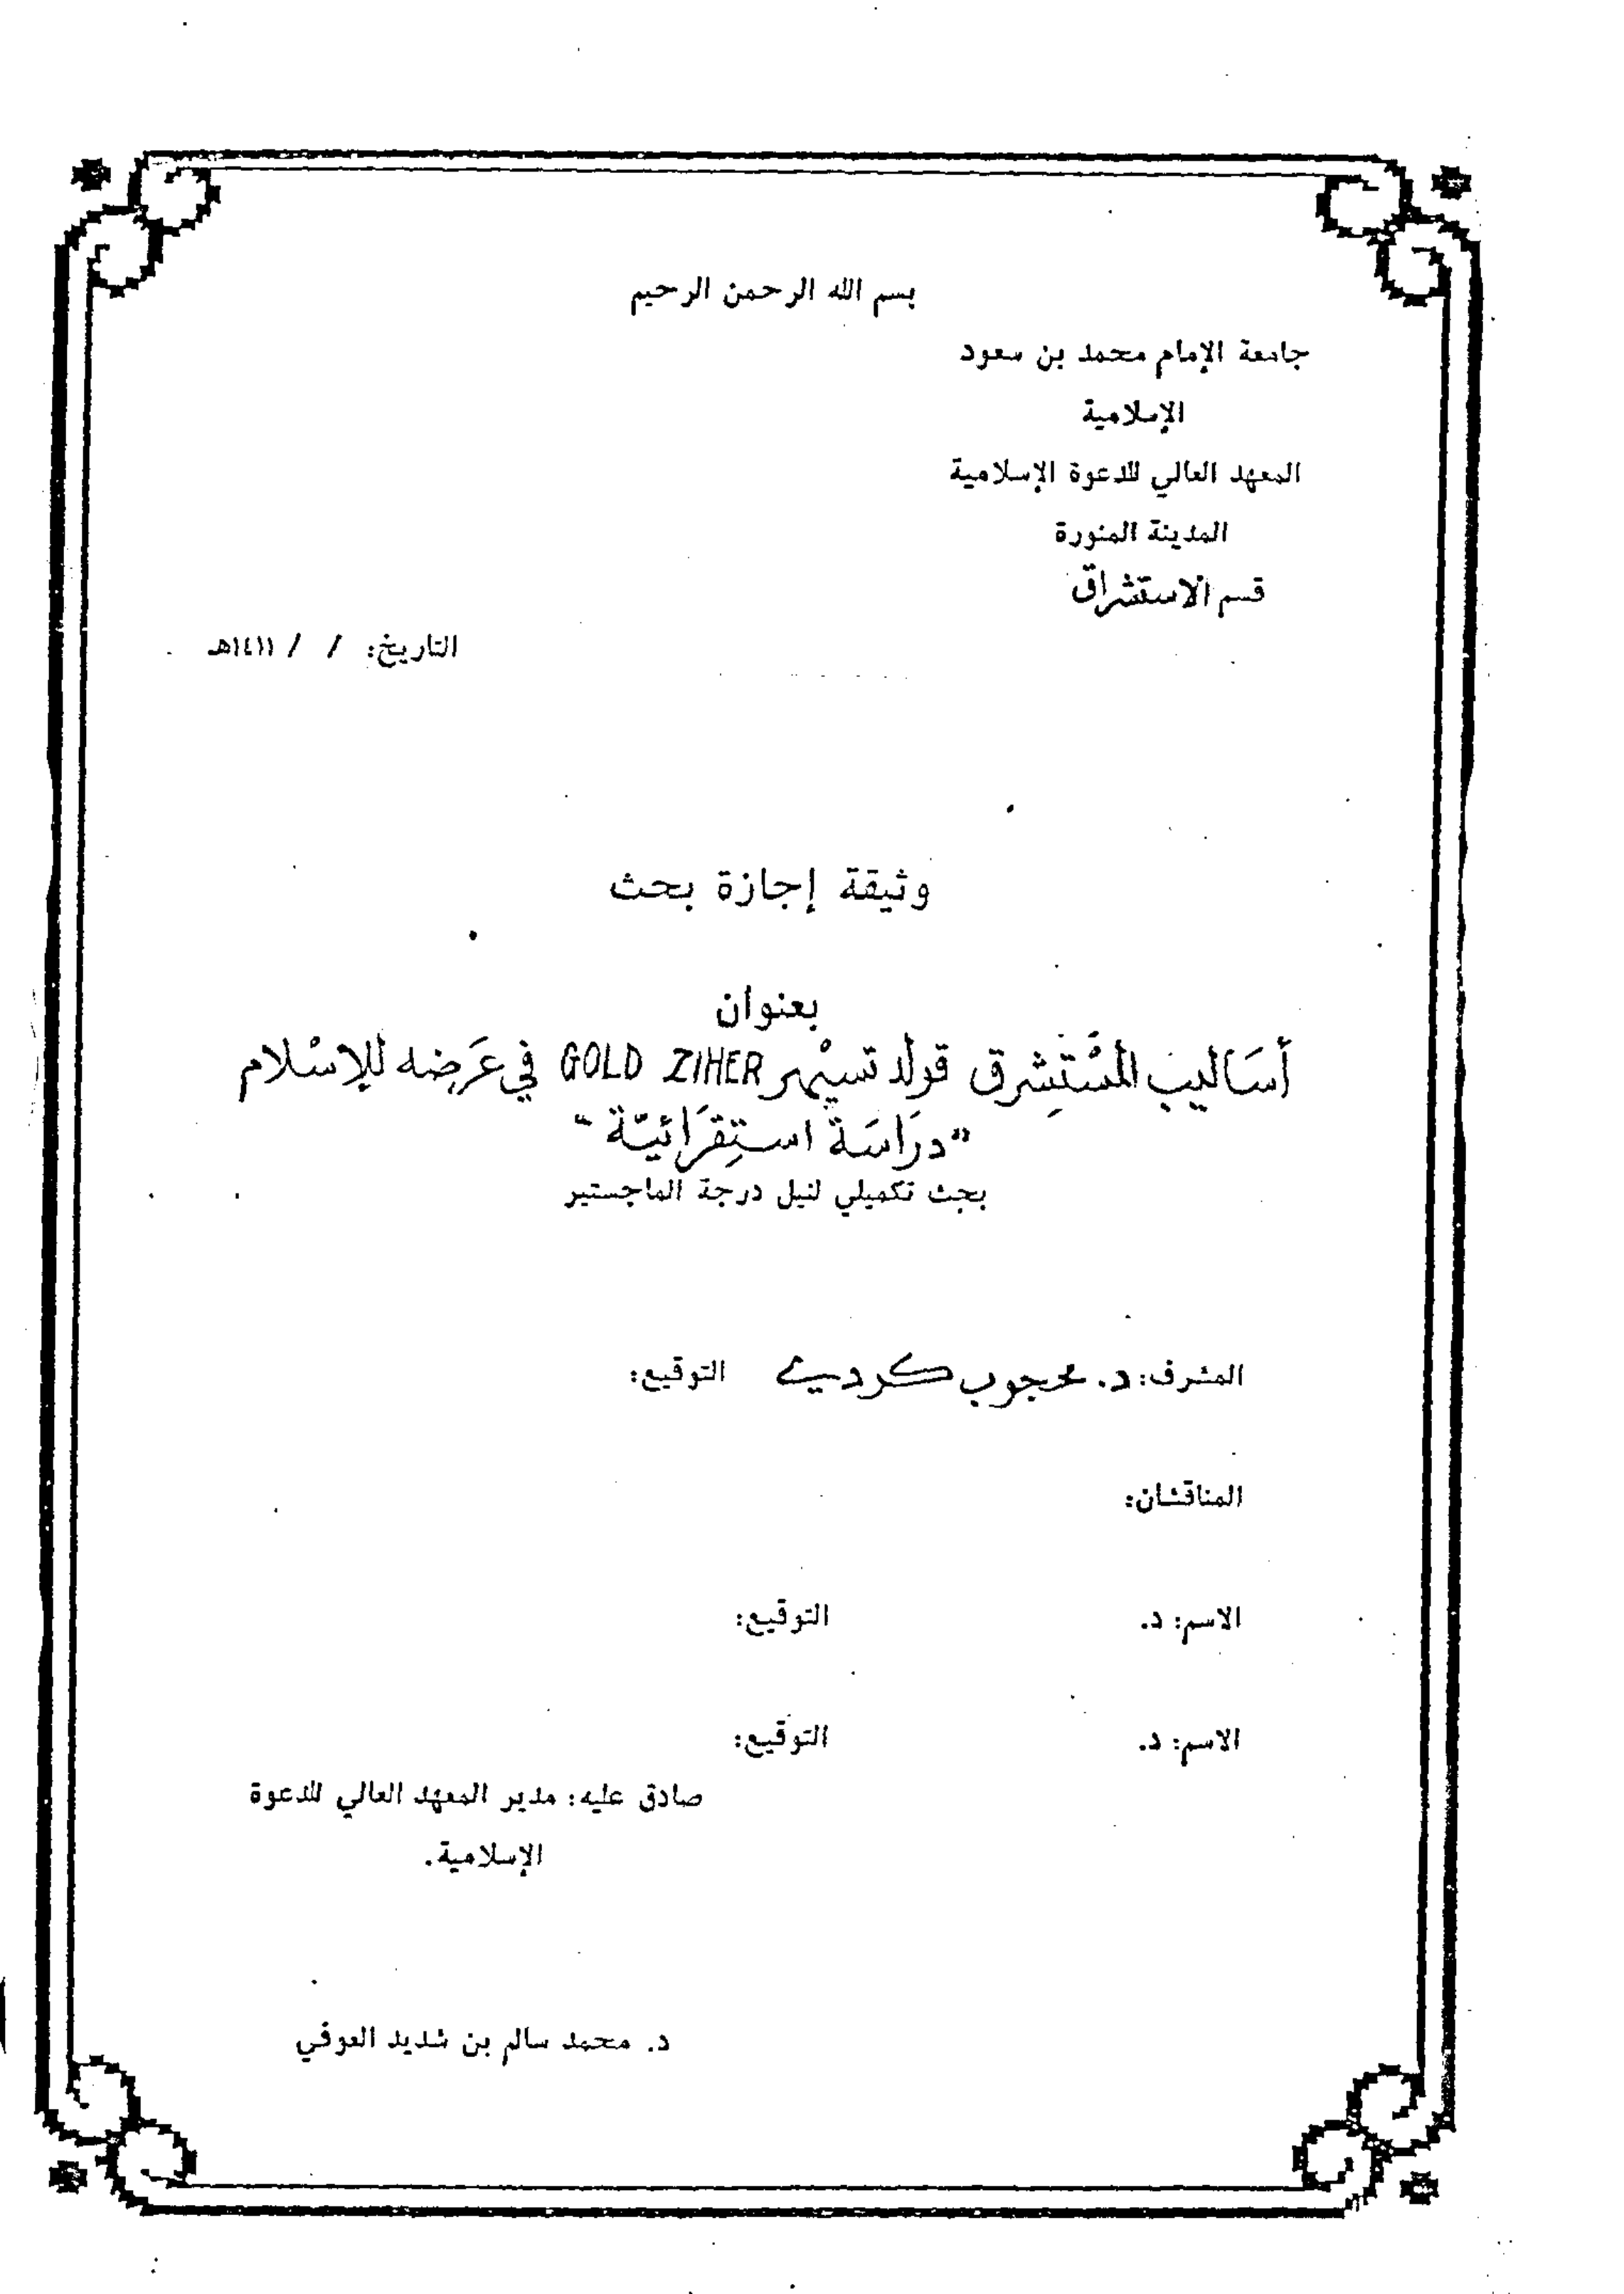 بسم الله الرحمن الرحيم
جامعة الإمام محمد بن سعود
الإسلامية
المعهد العالي للدعوة الإسلامية
المدينة المنورة
قسم الاستشراق
التاريخ: / / ١٤١١هـ
وثيقة إجازة بحث
بعنوان
أسَاليب المسْتَشِرق قولد تسيْهر GOLD ZIHER في عَرَضِه للإسْلام
"درَاسَة استِقرَائيّة"
بحث تكميلي لنيل درجة الماجستير
المشرف: د. محجوب كردي التوقيع:
المناقشان:
الاسم: د. التوقيع:
الاسم: د. التوقيع:
صادق عليه: مدير المعهد العالي للدعوة
الإسلامية.
د. محمد سالم بن شديد العوفي